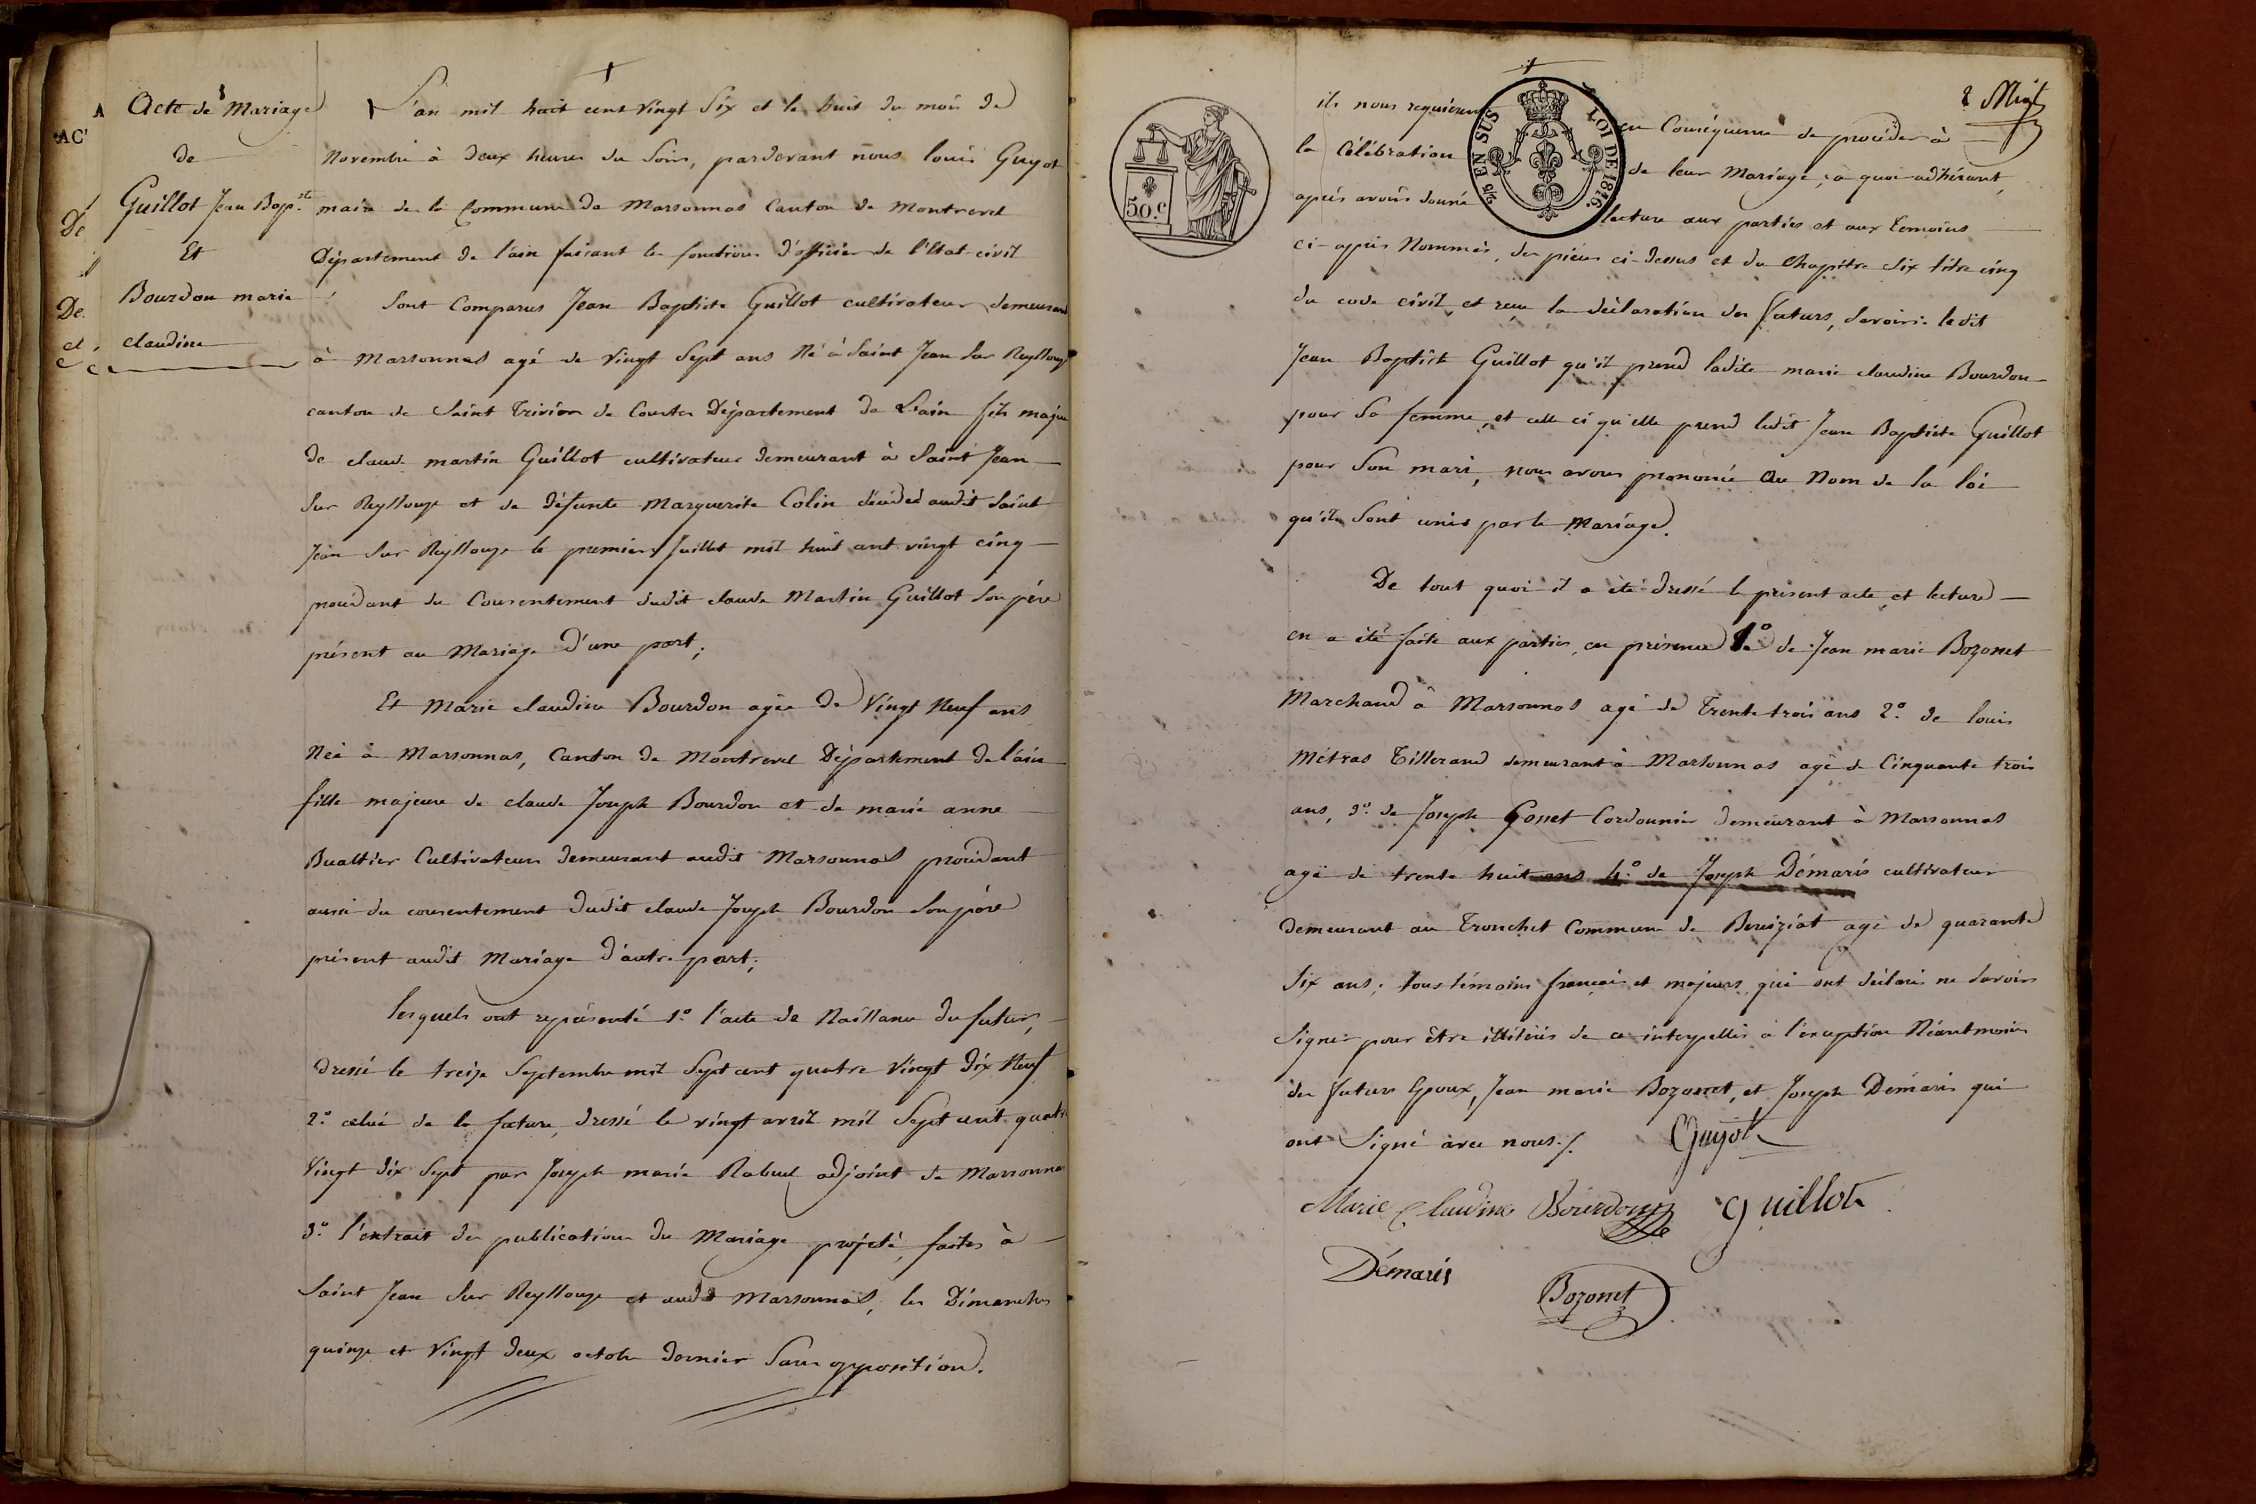 Acte de Mariage
de
Guillot Jean Bapte
Et
Bourdon marie
claudine
L'an mil huit cent vingt Six et le huit du mois de
Novembre à deux heures du Soir, pardevant nous louis Guyot
maire de la Commune de Marsonnas Canton de Montrevel
Département de l'ain faisant les fonctions d'officier de l'Etat-civil
Sont Comparus Jean Baptiste Guillot cultivateur demeurant
à Marsonnas agé de vingt Sept ans Né à Saint Jean Sur Reyssouze
canton de Saint Trivier de Courtes Département de L'ain fils majeur
de claude martin Guillot cultivateur demeurant à Saint Jean
Sur Reyssouze et de défunte Marguerite Colin décédée audit Saint
Jean Sur Reyssouze le premier Juillet mil huit cent vingt cinq
procédant du Consentement dudit claude Martin Guillot Son père
présent au Mariage D'une part;
Et Marie claudine Bourdon agée de Vingt Neuf ans
Née à Marsonnas, Canton de Montrevel Département de l'ain
fille majeure de claude Joseph Bourdon et de marie anne
Buattier Cultivateurs demeurant audit Marsonnas procédant
aussi du consentement dudit claude Joseph Bourdon Son père
présent audit Mariage D'autre part;
lesquels ont représenté 1° l'acte de Naissance du futur,
dressé le treize Septembre mil Sept cent quatre Vingt Dix Neuf
2° celui de la future, dressé le vingt avril mil Sept cent quatre
Vingt dix Sept par Joseph marie Rabuel adjoint de Marsonnas
3° l'extrait des publications du Mariage projeté, faites à
Saint Jean Sur Reyssouze et audit Marsonnas, les Dimanches
quinze et Vingt deux octobre dernier Sans opposition.
50.C
EN SUS LOI DE 1816.
ils nous requièrent en Conséquence de procéder à
la Célébration de leur Mariage, à quoi adhérant,
après avoir donné lecture aux parties et aux temoins
ci-après Nommés, des pièces ci-dessus et du Chapitre Six titre cinq
du code civil, et reçu la déclaration des futurs, Savoir: ledit
Jean Baptiste Guillot qu'il prend ladite marie claudine Bourdon
pour Sa femme, et celle ci qu'elle prend ledit Jean Baptiste Guillot
pour Son mari, nous avons prononcé Au Nom de la loi
qu'ils Sont unis par le Mariage.
De tout quoi il a été dressé le présent acte, et lecture
en a été faite aux parties, en présence 1° de Jean marie Bozonet
Marchand à Marsonnas agé de Trente trois ans 2° de louis
Métras Tisserand demeurant à Marsonnas agé de Cinquante trois
ans, 3° de Joseph Gonet Cordonnier demeurant à Marsonnas
agé de trente huit ans 4° de Joseph Démaris cultivateur
demeurant au Tronchet Commune de Béréziat agé de quarante
Six ans; tous témoins français et majeurs, qui ont déclaré ne Savoir
Signer pour être illitérés de ce interpellés à l'exception Néantmoins
des futurs Epoux, Jean marie Bozonet, et Joseph Démaris qui
ont Signé avec nous./.
Guyot
Marie Claudine Bourdon guillot
Démaris
Bozonet